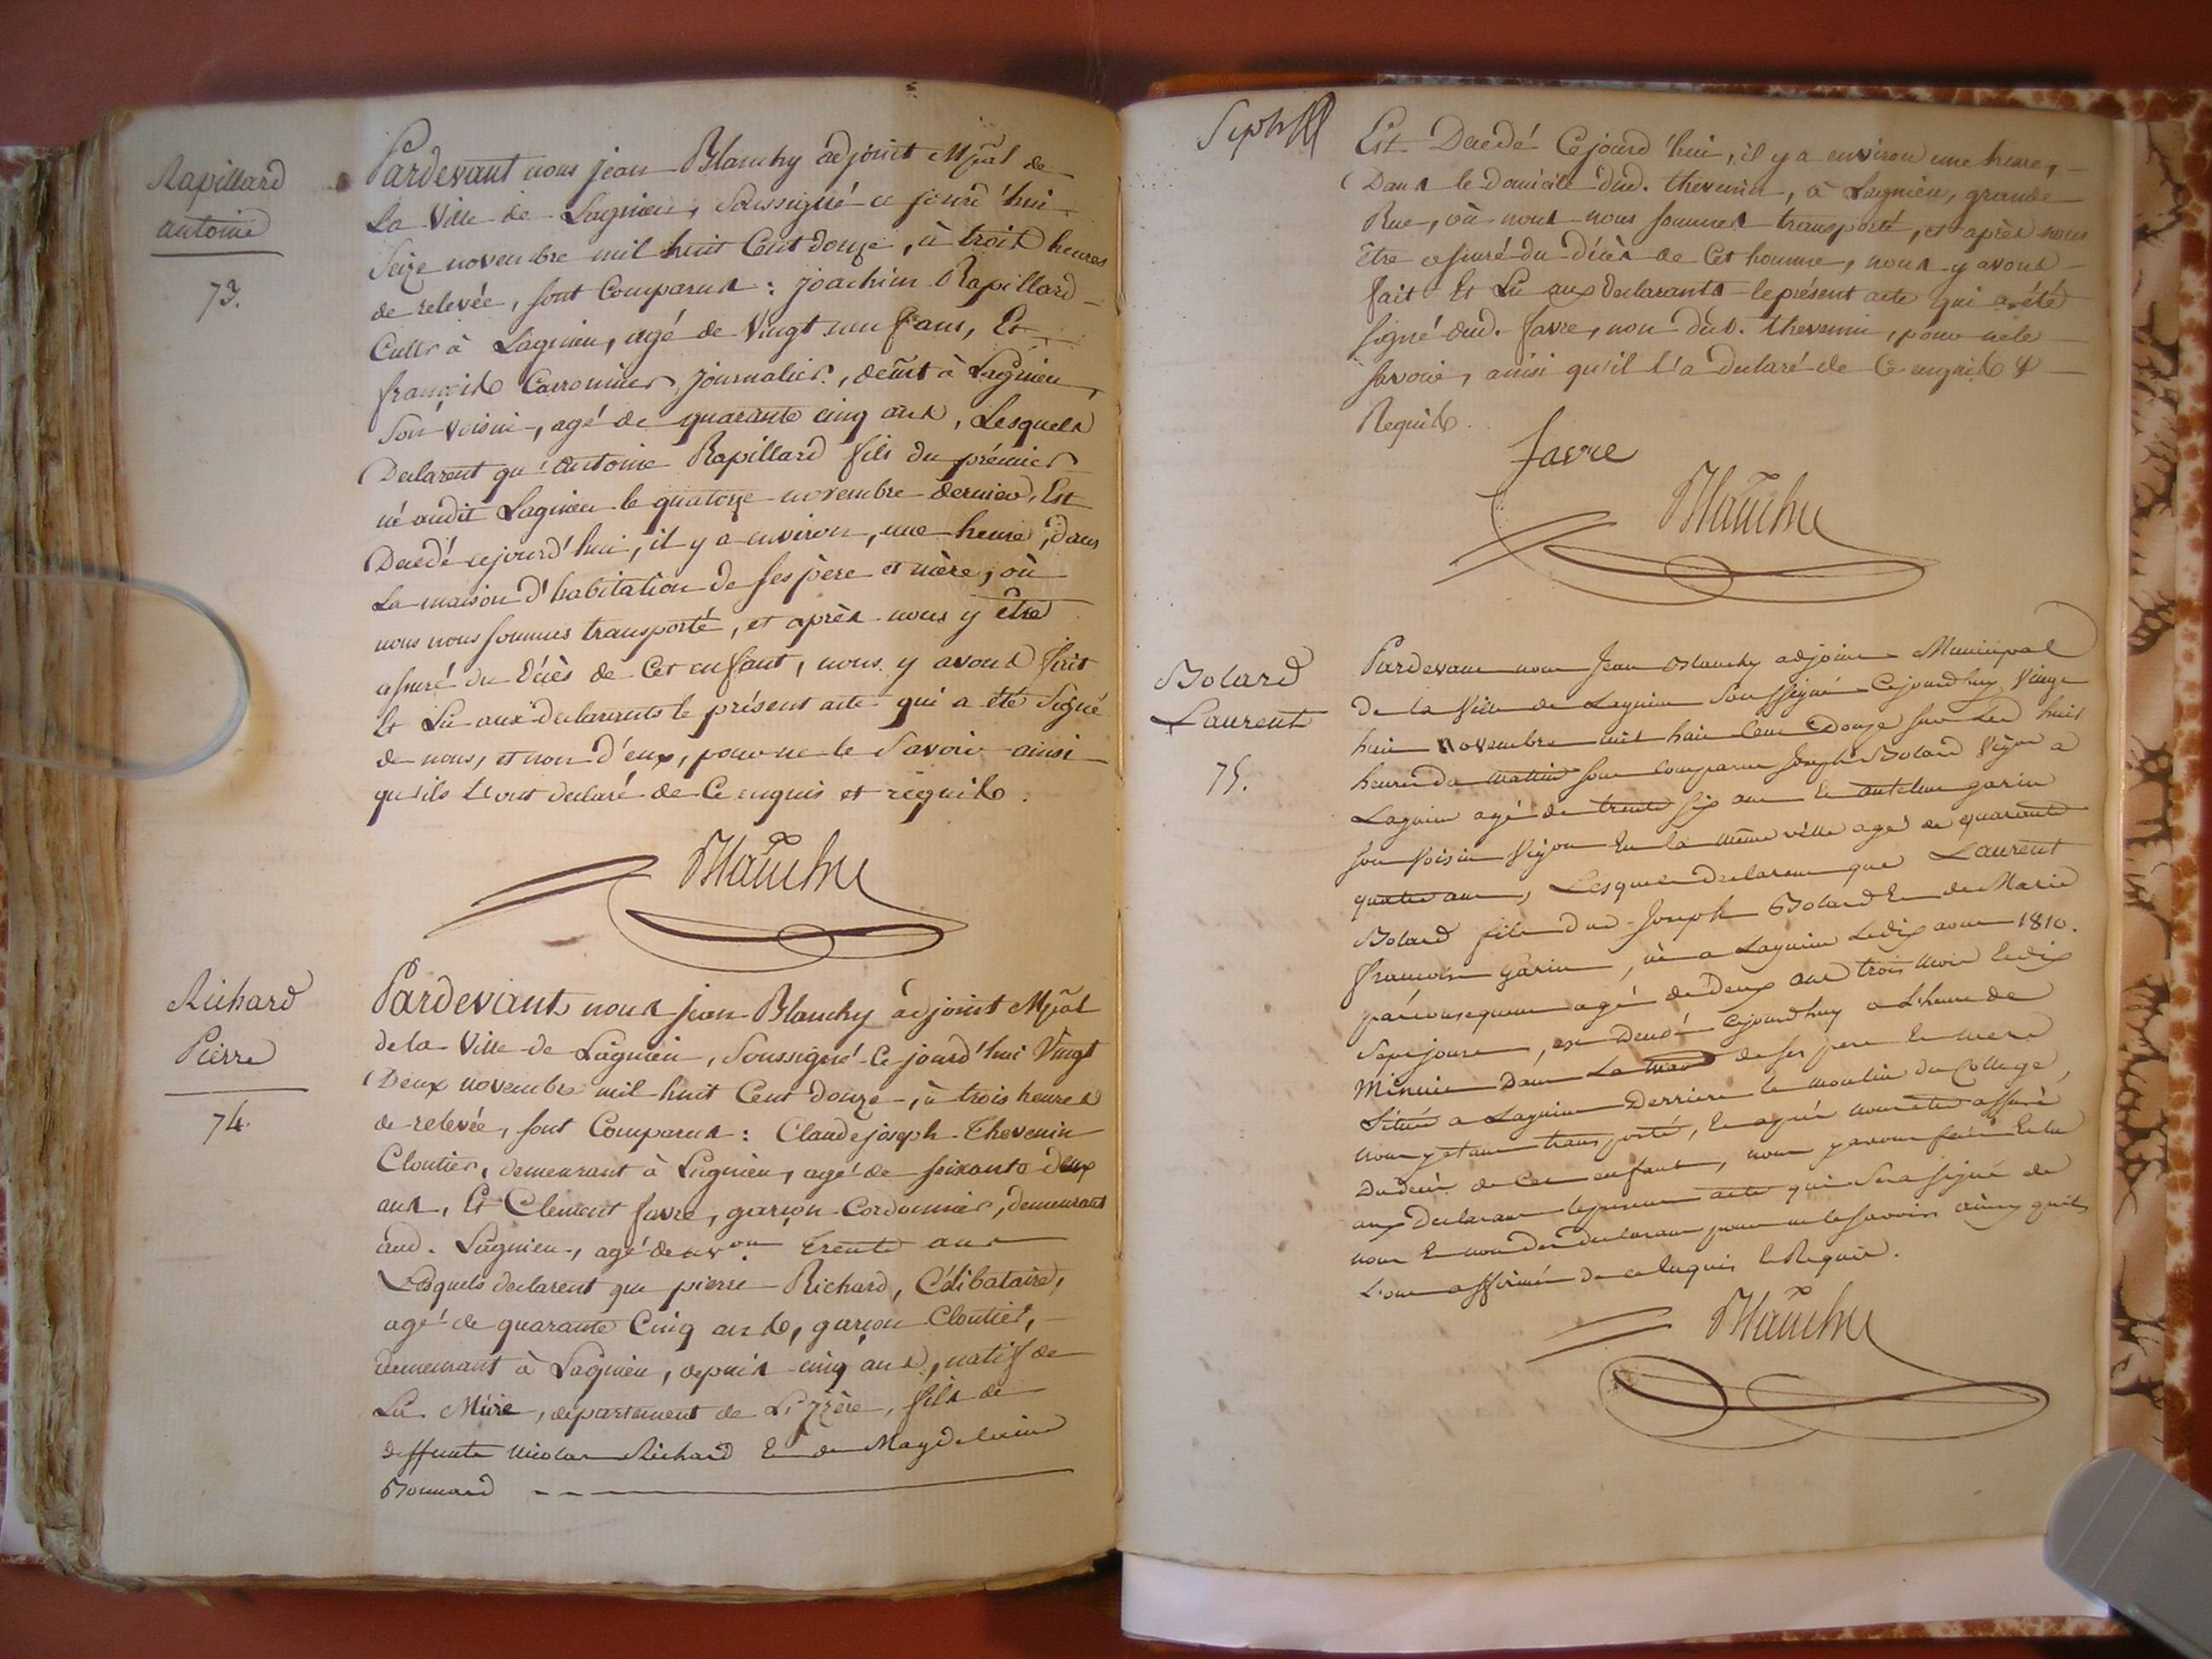 Rapillard
antoine
73.
Pardevant nous jean Blanchy adjoint Mpãl de
La Ville de Lagnieu, Soussigné ce jourd'hui
Seize novembre mil huit Cent douze, à trois heures
de relevée, sont Comparus : joachim Rapillard
Cultr à Lagnieu, agé de Vingt neuf ans, Et
françois Carronnier journalier, demt à Lagnieu,
Son Voisin, agé de quarante cinq ans, Lesquels
Declarent qu'antoine Rapillard fils du prémier
né audit Lagnieu le quatorze novembre dernier, Est
Decedé cejourd'hui, il y a environ, une heure, dans
La maison d'habitation de ses père et mère, où
nous nous sommes transporté, et après nous y être
assuré du Décès de Cet enfant, nous y avons fait
Et Lu aux declarants le présent acte qui a été Signé
de nous, et non d'eux, pour ne le Savoir ainsi
qu'ils L'ont declaré de Ce enquis et réquis.
Blanchy
Richard
Pierre
74.
Pardevant nous jean Blanchy adjoint Mpãl
de la Ville de Lagnieu, Soussigné Ce jourd'hui Vingt
Deux novembre mil huit Cent douze, à trois heures
de relevée, sont Comparus : Claude joseph Thevenin
Cloutier, demeurant à Lagnieu, agé de soixante deux
ans, Et Clement favre, garçon Cordonnier, demeurant
aud. Lagnieu, agé de Trente ans
Lesquels declarent que pierre Richard, Célibataire,
agé de quarante Cinq ans, garçon Cloutier,
demeurant à Lagnieu, depuis cinq ans, natif de
La Mure, departement de L'jzère, fils de
deffunte nicolas Richard Et de Magdeleine
Bonnard
Est Decedé Cejourd'hui, il y a environ une heure,
Dans le Domicile dud. thevenin, à Lagnieu, grande
Rue, où nous nous sommes transporté, et après nous
être assuré du Décès de Cet homme, nous y avons
fait Et Lu aux declarants le présent acte qui a été
signé dud. favre, non dud. thevenin, pour ne le
savoir, ainsi qu'il l'a declaré de Ce enquis &
Requis.
favre
Blanchy
Bolard
Laurent
75.
Pardevant nous Jean Blanchy adjoint Municipal
De la Ville de Lagnieu Soussigné Cejourdhuy Vingt
huit novembre mil huit Cent Douze sur Les huit
heures du matin sont comparu Joseph Bolard Vign a
Lagnieu agé de trente six ans Et antelme garin
son Voisin Vignon En la même ville agé de quarante
quatre ans, Lesquels declarent que Laurent
Bolard fils dud Joseph Bolard Et de Marie
françoise Garin, né a Lagnieu Le dix aout 1810.
par consequent agé de deux ans trois mois Et dix
Sept jours, est Decedé Cejourdhuy a L'heure de
Minuit Dans La de ses pere Et mere
Située a Lagnieu Derriere le moulin du College,
nous y etant transporté, Et après nous etre assuré
Du decès de Cet enfant, nous y avons fait Et lu
aux Declarans le present acte qui Sera signé de
nous Et non des declarans pour ne le savoir ainsy quils
L'ont affirmé de ce Enquis Et Requis.
Blanchy